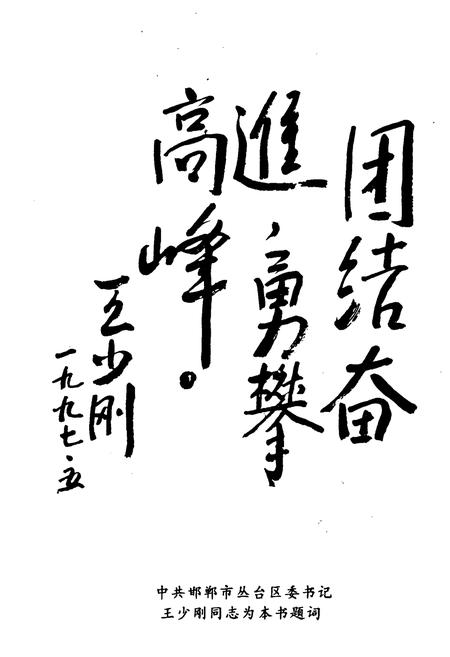 团结奋
進,勇攀
高峰。
王少刚
一九九七·五
中共邯郸市丛台区委书记
王少刚同志为本书题词